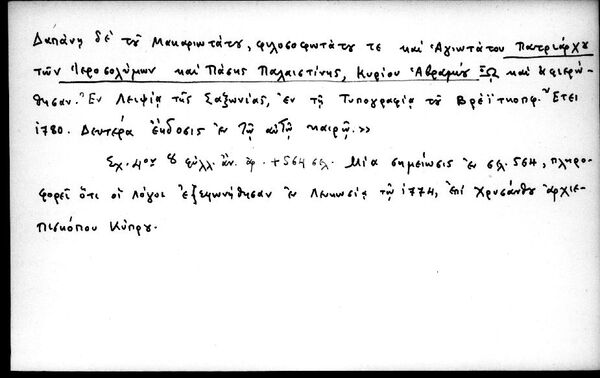 Δαπάνῃ δὲ τοῦ Μακαριωτάτου, φιλοσοφωτάτου τε καὶ Ἁγιωτάτου Πατριάρχου
τῶν Ἱεροσολύμων καὶ Πάσης Παλαιστίνης, Κυρίου Ἀβραμίου
καὶ ἀφιερώ-
θησαν. Ἐν Λειψίᾳ τῆς Σαξωνίας, ἐν τῇ Τυπογραφίᾳ τοῦ Βρεῒτκοπφ. Ἔτει
1780. Δευτέρα ἔκδοσις ἐν τῷ αὐτῷ καιρῷ.»
Σχ. 4ον 8 φύλλ. ἄν. ἀρ. + 564 σελ. Μία σημείωσις ἐν σελ. 564, πληρο-
φορεῖ ὅτι οἱ λόγοι ἐξεφωνήθησαν ἐν Λευκωσίᾳ τῷ 1774, ἐπὶ Χρυσάνθου ἀρχιε-
πισκόπου Κύπρου.